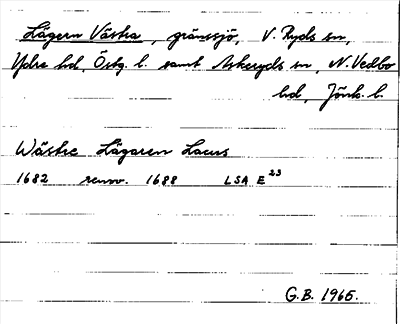 Lägern Västra, gränssjö, V. Ryds sn,
Ydre hd, Östg. l. samt Askeryds sn, N. Vedbo
hd, Jönk. l.
Wästre Lägaren Lacus
1682 renov. 1688 LSA E 23
G.B. 1965.